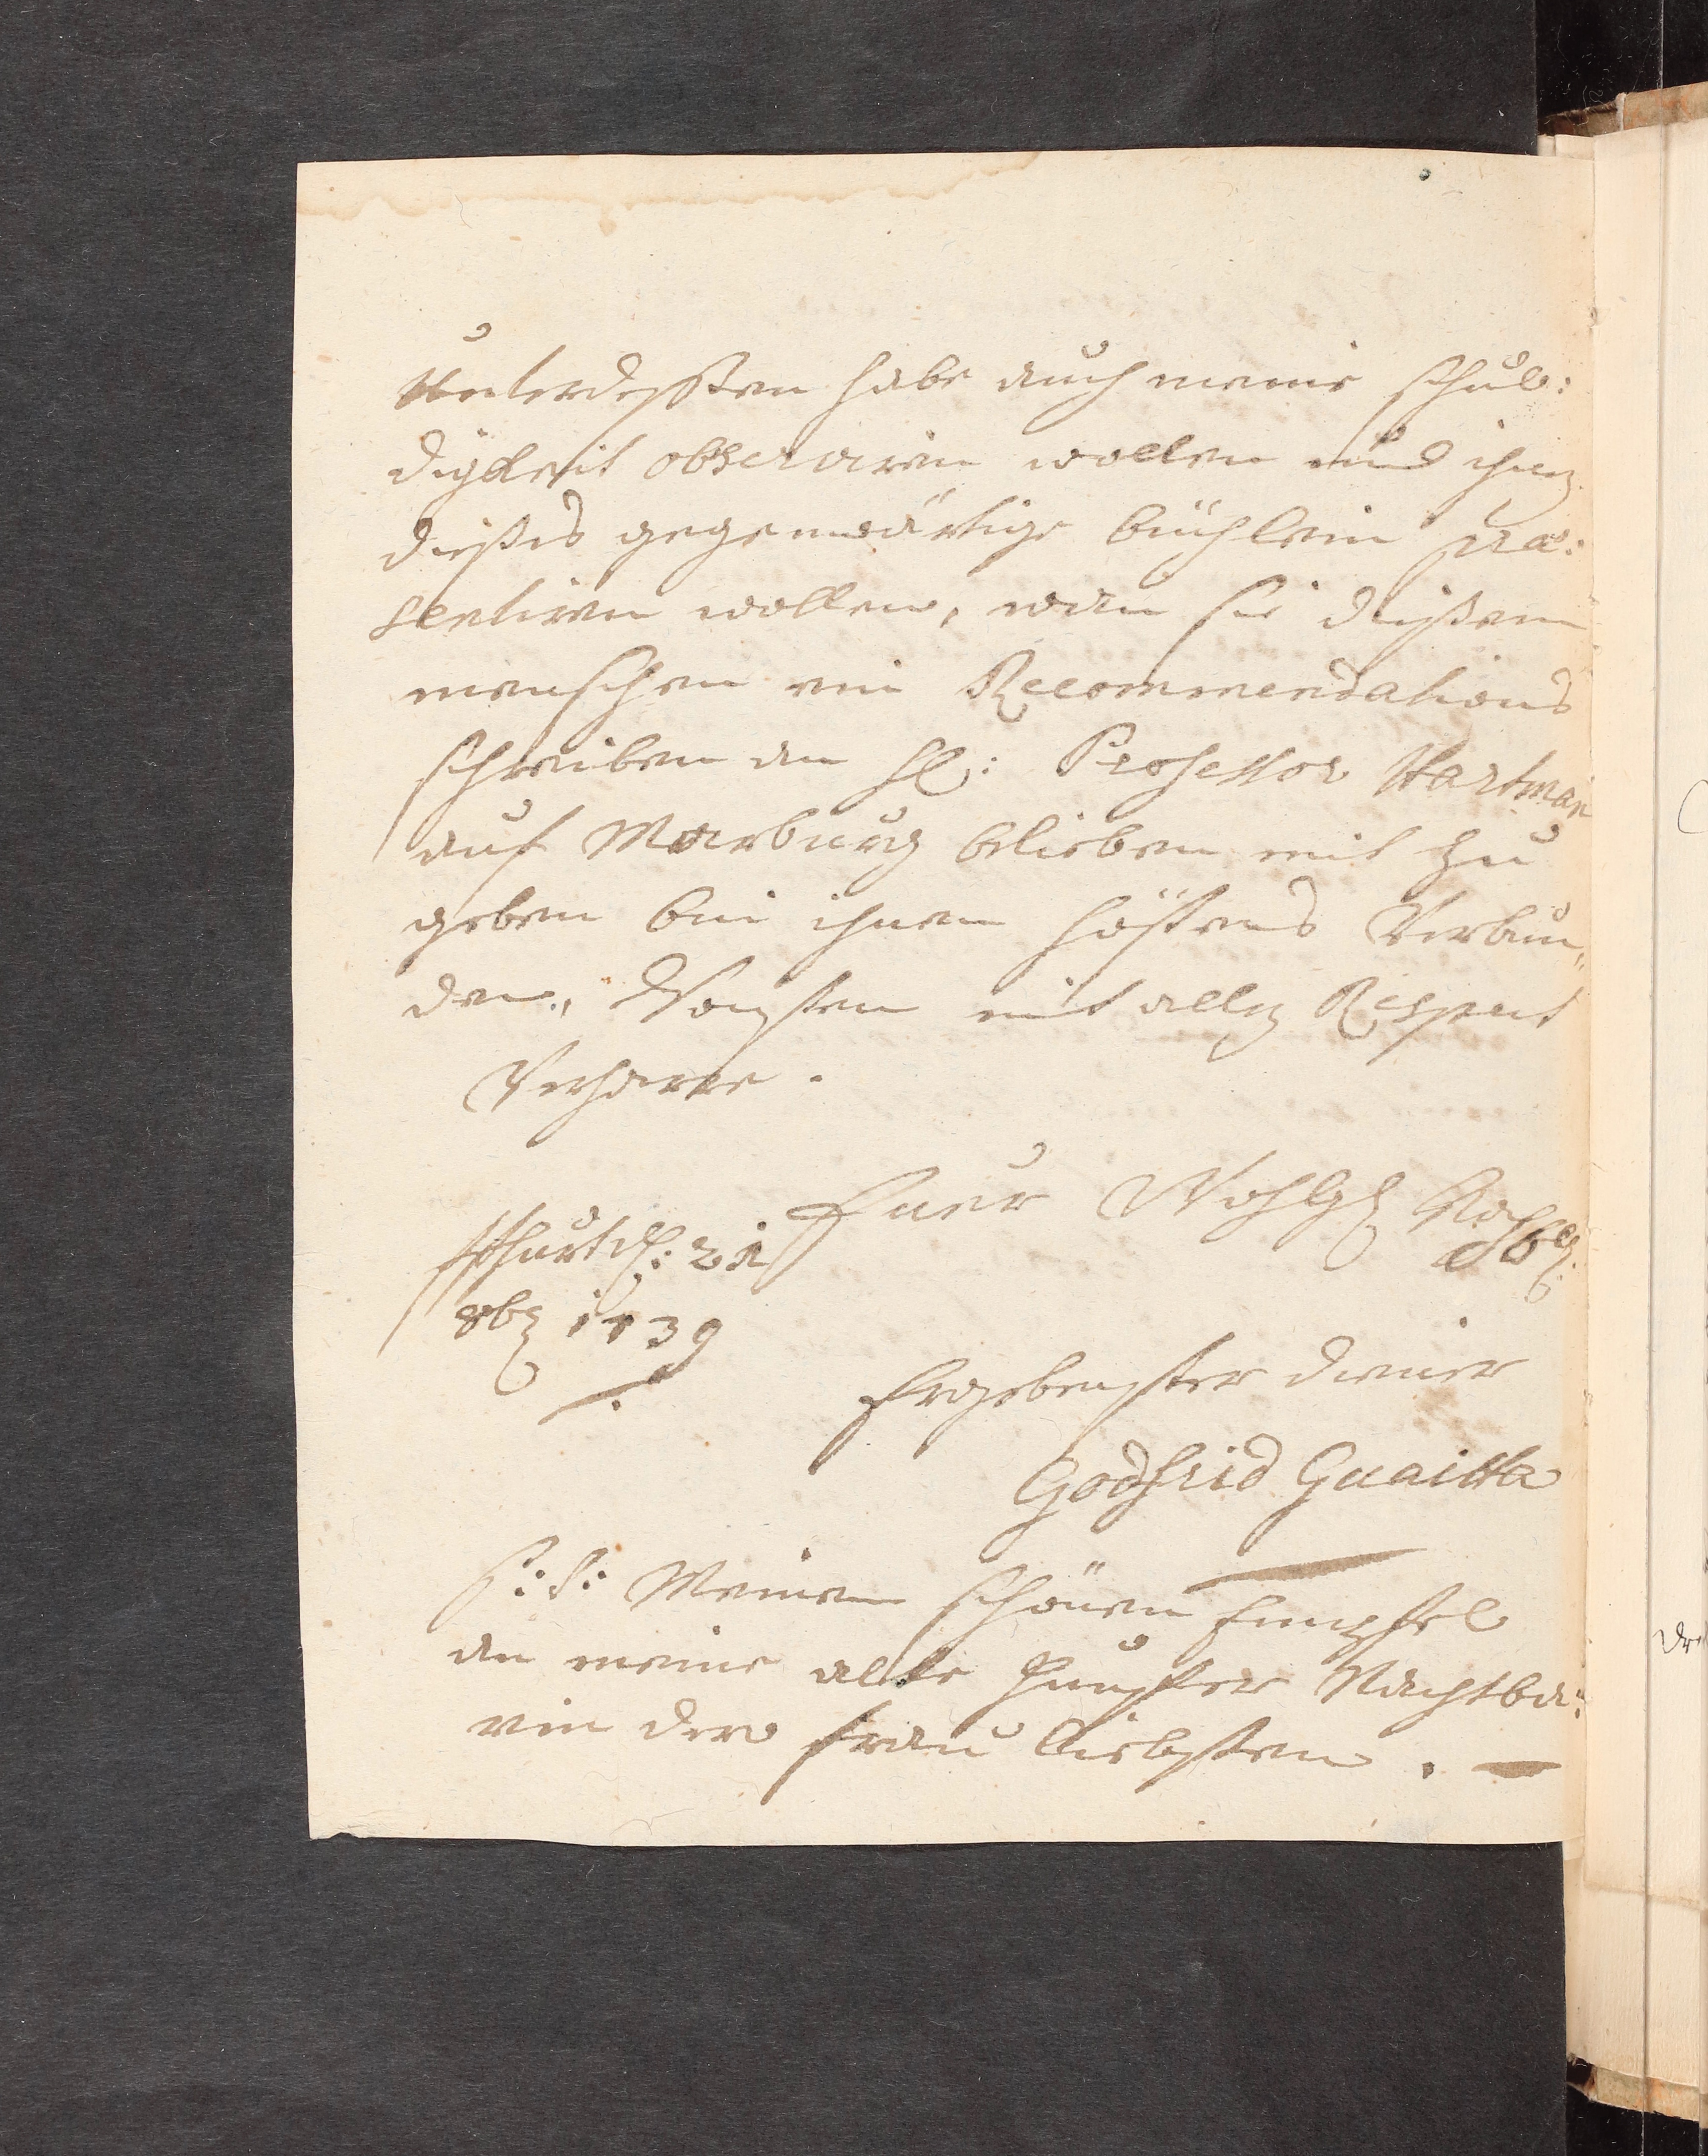 Unterdeßen habe auch meine schul:
digkeit observiren wollen und ihnen
dießes gegenwärtige büchlein præ:
sentiren wollen, wan sie dießem
menschen ein Recommendations
schreiben an H: Professor Hartman
auf Marburg belieben mit zu
geben bin ihnen höstens Verbun„
den, Vonsten mit allen Respect
Verharre.
Euer Wohlgeb
21
8b 1739
Ergebenster diener
Godfrid Guaitta
P:S: Meinen schönen Empfel
an meine alte Jungfer Nachtba:
rin dero frau liebsten.